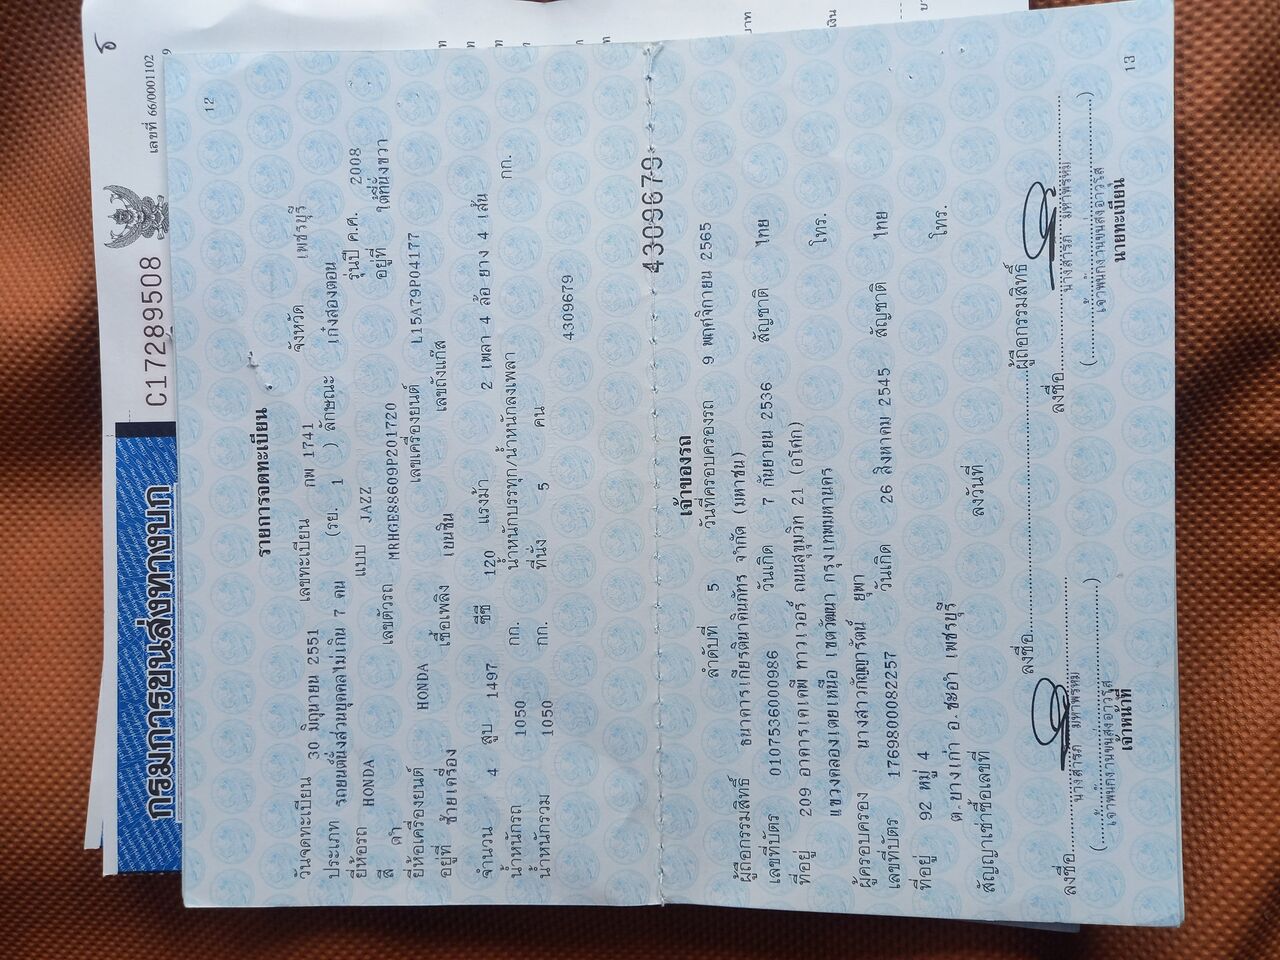 กรมการขนส่งทางบก
C17289508
เลขที่ 66/0001102
12
รายการจดทะเบียน
วันจดทะเบียน 30 มิถุนายน 2551 เลขทะเบียน กพ 1741 จังหวัด เพชรบุรี
ประเภท รถยนต์นั่งส่วนบุคคลไม่เกิน 7 คน (รย. 1 ) ลักษณะ เก๋งสองตอน
ยี่ห้อรถ HONDA แบบ JAZZ รุ่นปี ค.ศ. 2008
สี ดำ เลขตัวรถ MRHGE88609P201720 อยู่ที่ ใต้ที่นั่งขวา
ยี่ห้อเครื่องยนต์ HONDA เลขเครื่องยนต์ L15A79P04177
อยู่ที่ ซ้ายเครื่อง เชื้อเพลิง เบนซิน เลขถังแก๊ส
จำนวน 4 สูบ 1497 ซีซี 120 แรงม้า 2 เพลา 4 ล้อ ยาง 4 เส้น
น้ำหนักรถ 1050 กก. น้ำหนักบรรทุก/น้ำหนักลงเพลา กก.
น้ำหนักรวม 1050 กก. ที่นั่ง 5 คน
4309679
4309679
เจ้าของรถ
ลำดับที่ 5 วันที่ครอบครองรถ 9 พฤศจิกายน 2565
ผู้ถือกรรมสิทธิ์ ธนาคารเกียรตินาคินภัทร จำกัด (มหาชน)
เลขที่บัตร 0107536000986 วันเกิด 7 กันยายน 2536 สัญชาติ ไทย
ที่อยู่ 209 อาคารเคเคพี ทาวเวอร์ ถนนสุขุมวิท 21 (อโศก)
แขวงคลองเตยเหนือ เขตวัฒนา กรุงเทพมหานคร โทร.
ผู้ครอบครอง นางสาวกัญญารัตน์ ยุพา
เลขที่บัตร 1769800082257 วันเกิด 26 สิงหาคม 2545 สัญชาติ ไทย
ที่อยู่ 92 หมู่ 4
ต.บางเก่า อ.ชะอำ เพชรบุรี โทร.
สัญญาเช่าซื้อเลขที่ ลงวันที่
ลงชื่อ ผู้ถือกรรมสิทธิ์
ลงชื่อ ลงชื่อ
นางสำรภ มหาพรหม นางสำรภ มหาพรหม
เจ้าพนักงานขนส่งอาวุโส เจ้าพนักงานขนส่งอาวุโส
เจ้าหน้าที่ นายทะเบียน
13